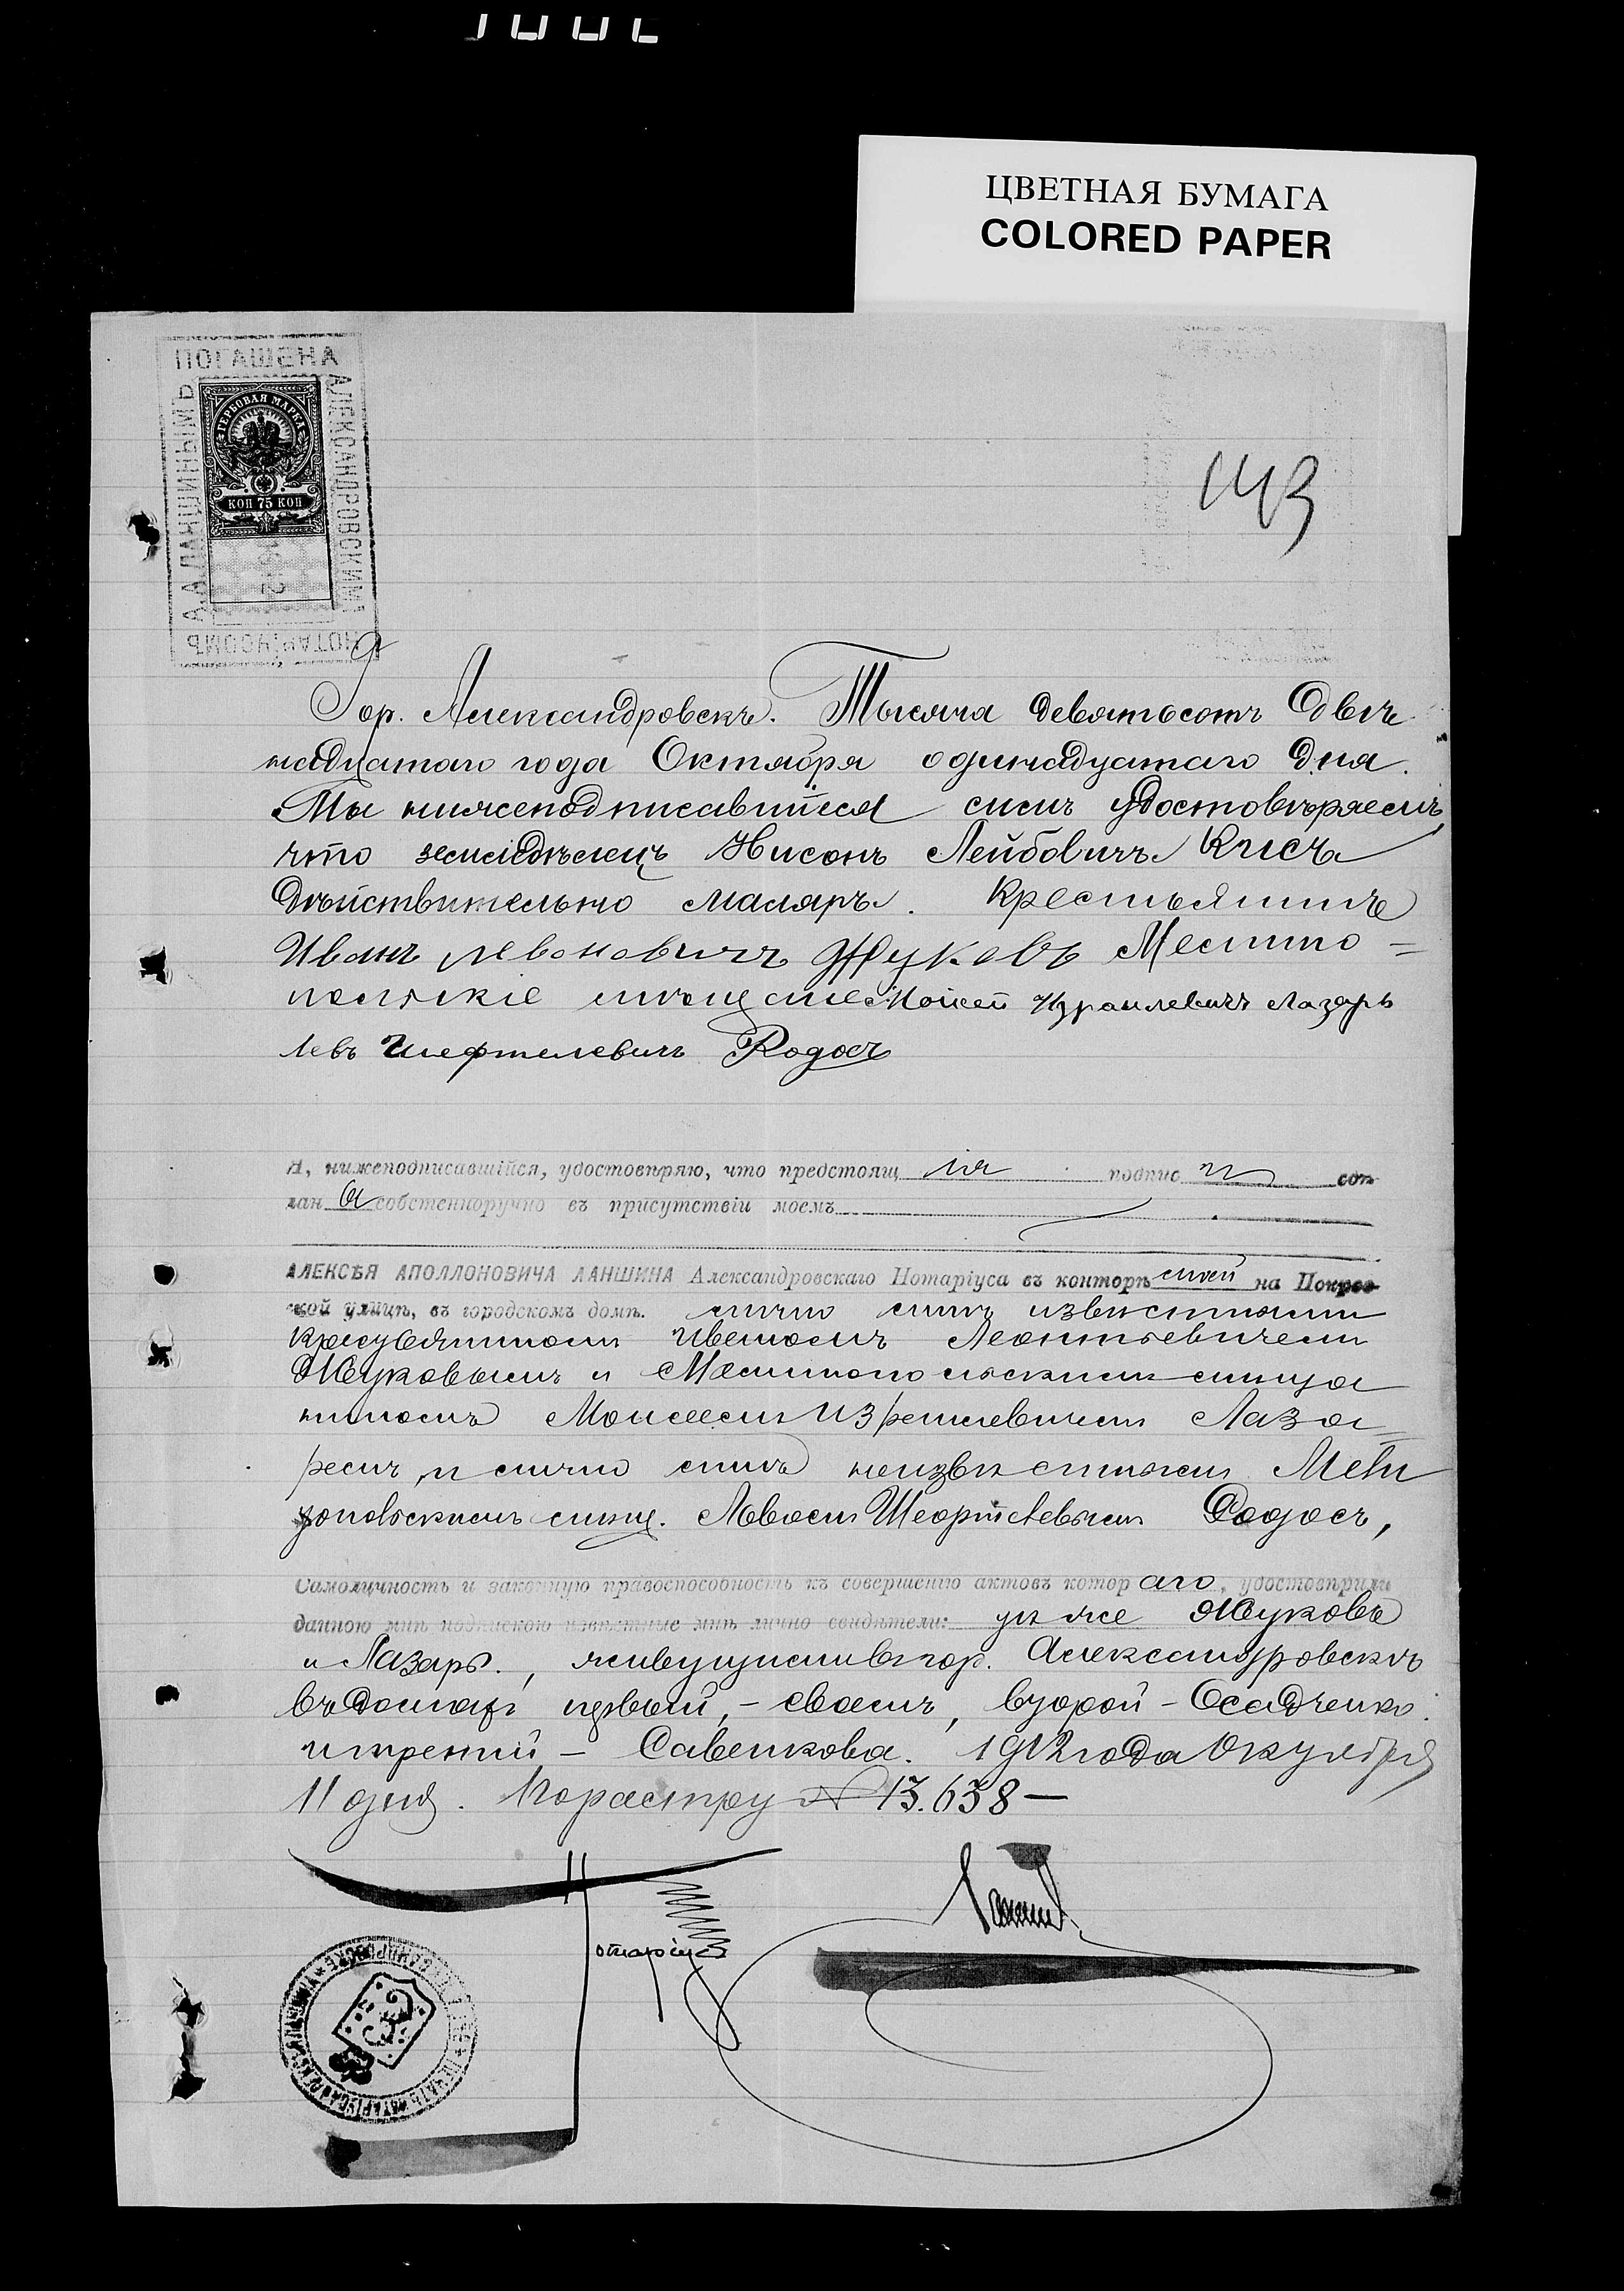 ЦВЕТНАЯ БУМАГА
COLORED PAPER
ПОГАШЕНА
АЛЕКСАНДРОВСКИМЪ
НОТАРІУСОМЪ
А. А. ЛАНШИНЫМЪ
ГЕРБОВАЯ МАРКА
КОП 75 КОП
143
Гор. Александровскъ. Тысяча девятьсотъ двѣ
надцатаго года Октября одинадцатаго дня.
Мы нижеподписавшіеся симъ удостовѣряемъ,
что земледѣлецъ Нисонъ Лейбовичъ Кисъ
дѣйствительно маляръ. Крестьянинъ
Иванъ Левоновичъ Жуковъ Мелито=
польскіе мѣщане Моисей Израилевичъ Лазарь
Левъ Шефтелевичъ Родосъ
Я, нижеподписавшійся, удостовѣряю, что предстоящія подписи сдѣ-
ланы собственноручно въ присутствіи моемъ
АЛЕКСѢЯ АПОЛЛОНОВИЧА ЛАНШИНА Александровскаго Нотаріуса въ конторѣ моей на Покров-
ской улицѣ, въ городскомъ домѣ. лично мнѣ извѣстными
крестьяниномъ Иваномъ Леонтьевичемъ
Жуковымъ и Мелитопольскимъ мѣща
ниномъ Моисеемъ Израилевичемъ Лаза=
ремъ, и лично мнѣ неизвѣстнымъ Мели
топольскимъ мѣщ. Львомъ Шефтелевымъ Родосъ,
Самоличность и законную правоспособность къ совершенію актовъ котораго, удостовѣрили
данною мнѣ подпискою извѣстные мнѣ лично свидѣтели: тѣ же Жуковъ
и Лазарь, живущими въ гор. Александровскѣ
въ домахъ: первый, - своемъ, второй - Осадченко
и третій - Савенкова. 1912 года Октября
11 дня. По реестру № 13.638 —
Нотаріусъ Ланшинъ